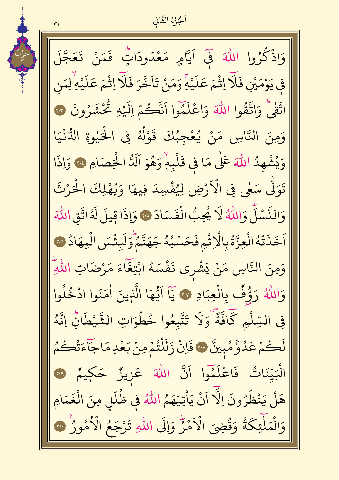 الجزء الثاني
٣١
وَاذْكُرُوا اللهَ فِٓي اَيَّامٍ مَعْدُودَاتٍۜ فَمَنْ تَعَجَّلَ
فِي يَوْمَيْنِ فَلَٓا اِثْمَ عَلَيْهِۚ وَمَنْ تَاَخَّرَ فَلَٓا اِثْمَ عَلَيْهِۙ لِمَنِ
اتَّقٰىۜ وَاتَّقُوا اللهَ وَاعْلَمُٓوا اَنَّكُمْ اِلَيْهِ تُحْشَرُونَ ﴿٢٠٣﴾
وَمِنَ النَّاسِ مَنْ يُعْجِبُكَ قَوْلُهُ فِي الْحَيٰوةِ الدُّنْيَا
وَيُشْهِدُ اللهَ عَلٰى مَا فِي قَلْبِهِۙ وَهُوَ اَلَدُّ الْخِصَامِ ﴿٢٠٤﴾ وَاِذَا
تَوَلّٰى سَعٰى فِي الْاَرْضِ لِيُفْسِدَ فِيهَا وَيُهْلِكَ الْحَرْثَ
وَالنَّسْلَۜ وَاللهُ لَا يُحِبُّ الْفَسَادَ ﴿٢٠٥﴾ وَاِذَا قِيلَ لَهُ اتَّقِ اللهَ
اَخَذَتْهُ الْعِزَّةُ بِالْاِثْمِ فَحَسْبُهُ جَهَنَّمُۜ وَلَبِئْسَ الْمِهَادُ ﴿٢٠٦﴾
وَمِنَ النَّاسِ مَنْ يَشْرِي نَفْسَهُ ابْتِغَٓاءَ مَرْضَاتِ اللهِۜ
وَاللهُ رَؤُ۫فٌ بِالْعِبَادِ ﴿٢٠٧﴾ يَٓا اَيُّهَا الَّذِينَ اٰمَنُوا ادْخُلُوا
فِي السِّلْمِ كَٓافَّةًۖ وَلَا تَتَّبِعُوا خُطُوَاتِ الشَّيْطَانِۜ اِنَّهُ
لَكُمْ عَدُوٌّ مُبِينٌ ﴿٢٠٨﴾ فَاِنْ زَلَلْتُمْ مِنْ بَعْدِ مَا جَٓاءَتْكُمُ
الْبَيِّنَاتُ فَاعْلَمُٓوا اَنَّ اللهَ عَزِيزٌ حَكِيمٌ ﴿٢٠٩﴾
هَلْ يَنْظُرُونَ اِلَّٓا اَنْ يَأْتِيَهُمُ اللهُ فِي ظُلَلٍ مِنَ الْغَمَامِ
وَالْمَلٰٓئِكَةُ وَقُضِيَ الْاَمْرُۜ وَاِلَى اللهِ تُرْجَعُ الْاُمُورُ۟ ﴿٢١٠﴾